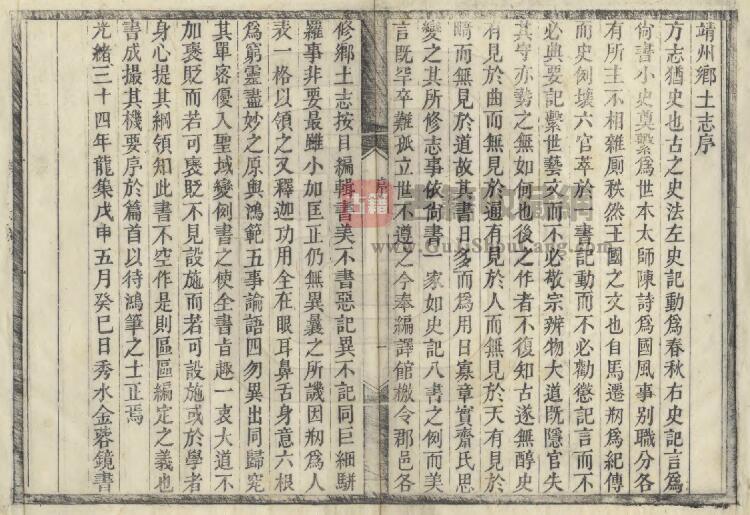 靖州鄉土志序
方志猶史也古之史法左史記動爲春秋右史記言爲
尚書小史奠繫爲世本太師陳詩爲國風事別職分各
有所主不相雜厠秩然王國之文也自馬遷刱爲紀傳
而史例壞六官萃於一書記動而不必勸懲記言而不
必典要記繫世藝文而不必敬宗辨物大道既隱官失
其守亦勢之無如何也後之作者不復知古遂無醇史
有見於曲而無見於通有見於人而無見於天有見於
睛而無見於道故其書日多而爲用日寡章實齋氏思
變之其所修志事依尚書一家如史記八書之例而美
言既罕卒難孤立世不遵之今奉編譯館檄令郡邑各
修鄉土志按目編輯書美不書惡記異不記同巨細駢
羅事非要最雖小加匡正仍無異曩之所譏因刱爲人
表一格以領之又釋迦功用全在眼耳鼻舌身意六根
爲窮靈盡妙之原與鴻範五事論語四勿異出同歸究
其單密優入聖域變例書之使全書旨趣一衷大道不
加褒貶而若可褒貶不見設施而若可設施或於學者
身心提其綱領知此書不空作是則區區編定之義也
書成撮其機要序於篇首以待鴻筆之士正焉
光緒三十四年龍集戊申五月癸巳日秀水金蓉鏡書
序
一
古籍
www.GuJiShouCang.com